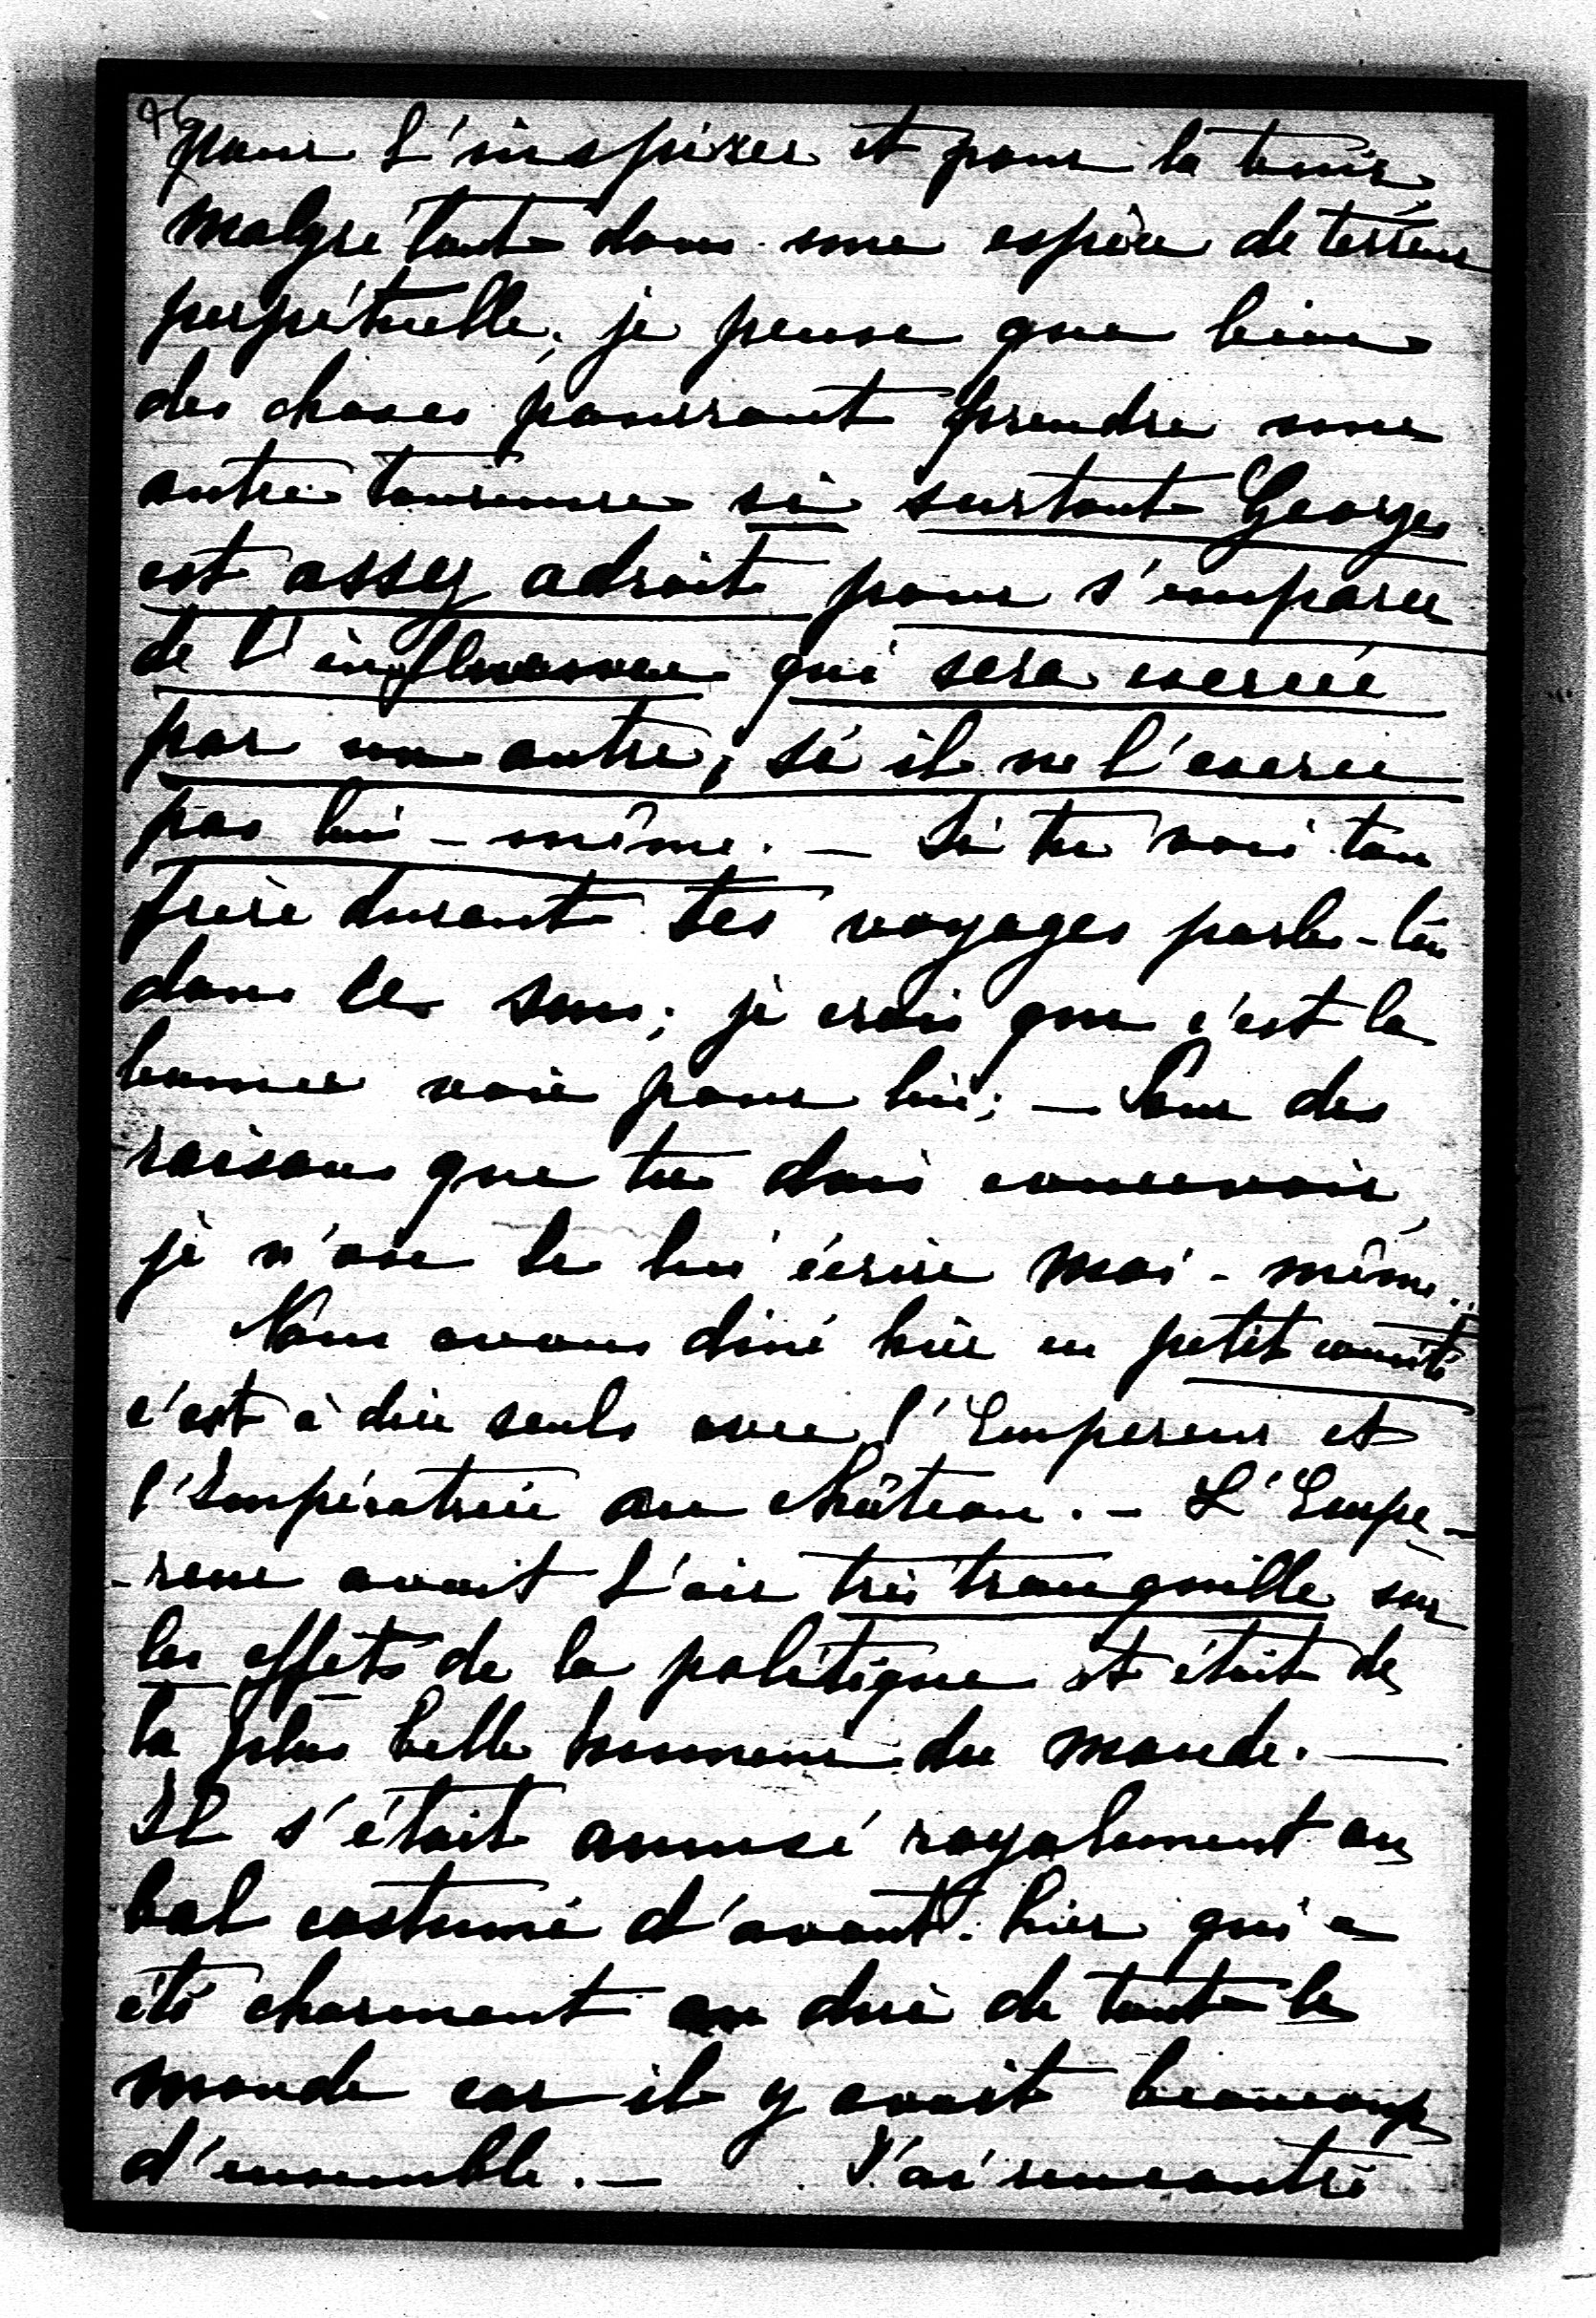 pour l'inspirer et pour la tenir,
malgré tout dans une espèce de terreur
perpétuelle; je pense que bien
des choses pourront prendre une
autre tournure si surtout Georges
est assez adroit pour s'emparer
de l'influence qui sera exercée
par un autre, si il ne l'exerce
pas lui-même. — Si tu vois ton
frère durant tes voyages parle-lui
dans ce sens; je crois que c'est la
bonne voie pour lui; — Pour des
raisons que tu dois concevoir,
je n'ose le lui écrire moi-même.
Nous avons diné hier en petit comité
c'est à dire seuls avec l'Empereur et
l'Impératrice au château. — L'Empe-
-reur avait l'air très tranquille sur
les effets de la politique et était de
la plus belle humeur du monde. —
Il s'était amusé royalement au
bal costumé d'avant-hier qui a
été charmant au dire de tout le
monde car il y avait beaucoup
d'ensemble. — J'ai rencontré